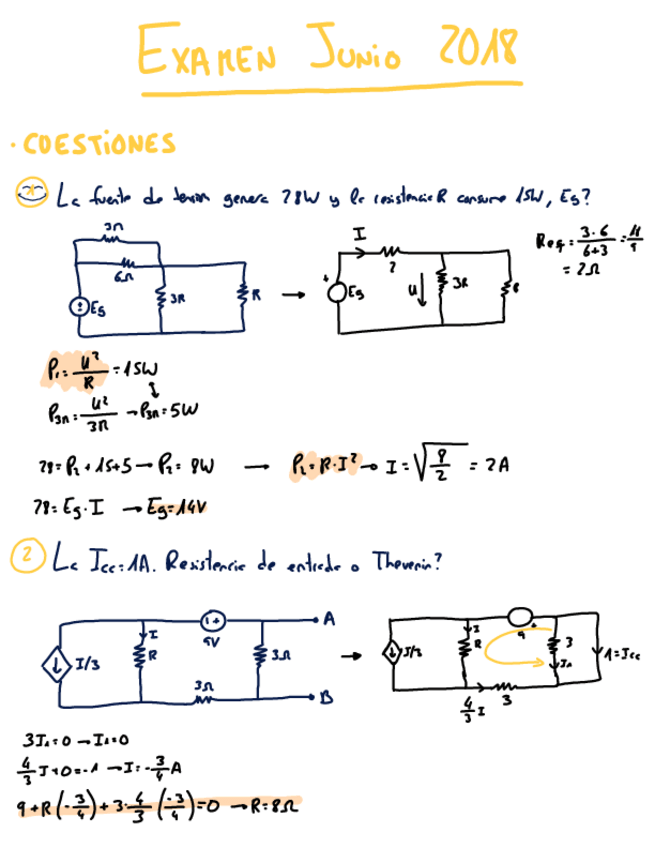 EXAMEN JUNIO 2018
• CUESTIONES
1 La fuente de tension genera 28W y la resistencia R consume 15W, Eg?
3Ω
6Ω
Eg
3R
R
I
2
Eg
u
3R
R
Req = 3·6 / 6+3 =
= 2Ω
P₁ = U² / R = 15W
P₃R = U² / 3R → P₃R = 5W
28 = P₂ + 15 + 5 → P₂ = 8W → P₂ = R·I² → I = √(8/2) = 2A
28 = Eg·I → Eg = 14V
2 La Icc = 1A. Resistencia de entrada o Thevenin?
I/3
I
R
9V
3Ω
3Ω
A
B
I/3
I
R
9
3
I₁
1A = Icc
4/3 I
3
3I₁ = 0 → I₁ = 0
4/3 I + 0 = -1 → I = -3/4 A
9 + R(-3/4) + 3·4/3 (-3/4) = 0 → R = 8Ω